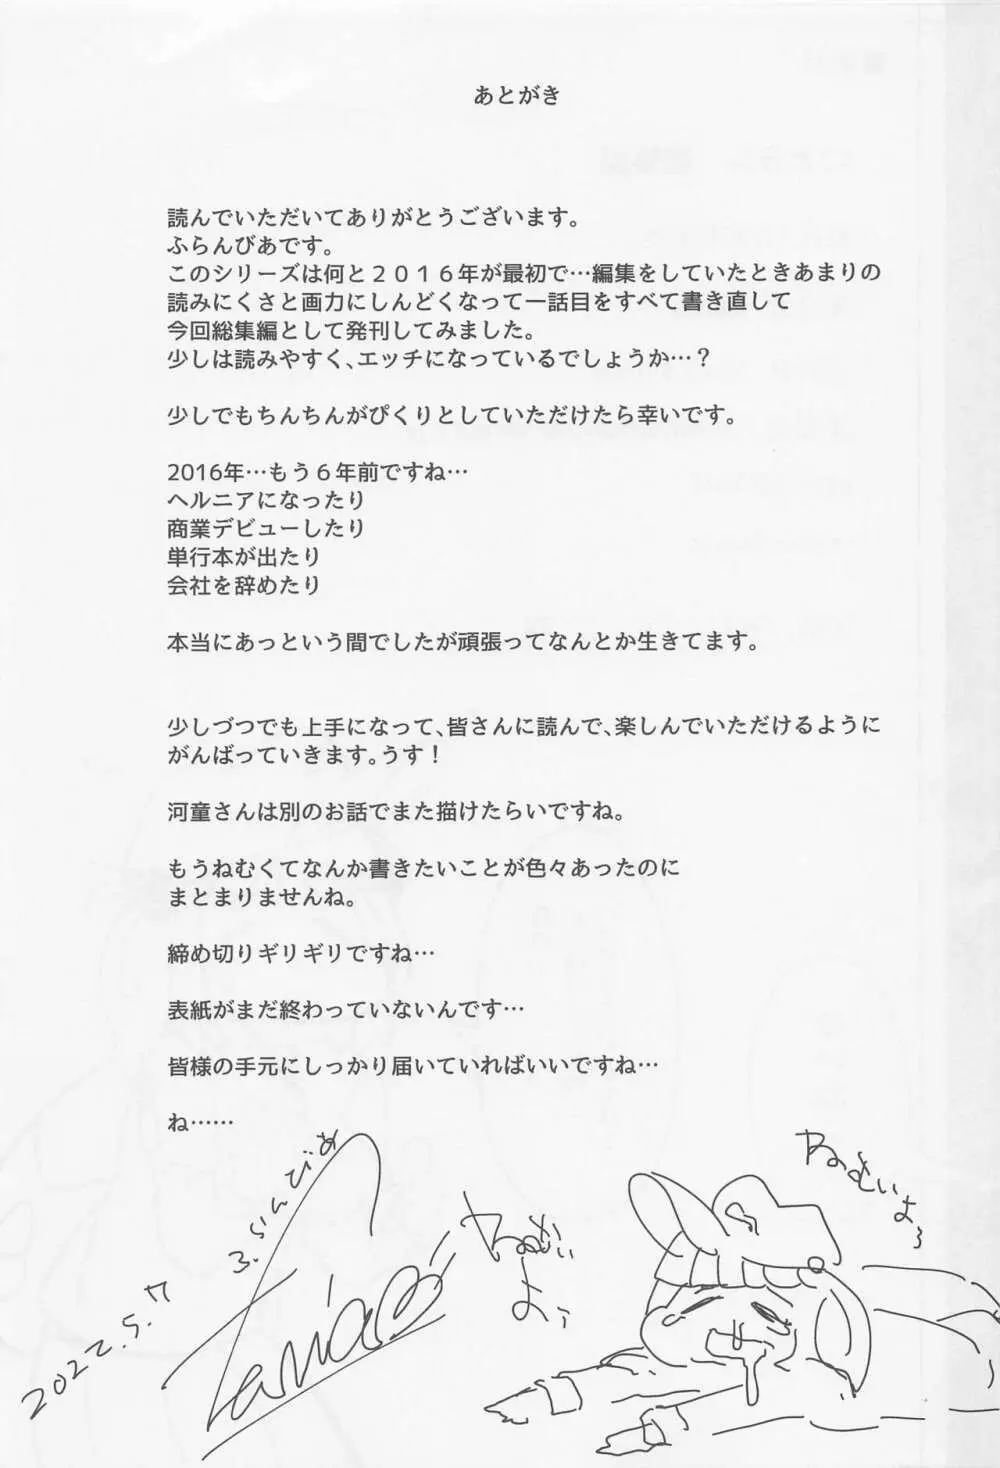 あとがき
読んでいただいてありがとうございます。
ふらんびあです。
このシリーズは何と２０１６年が最初で…編集をしていたときあまりの
読みにくさと画力にしんどくなって一話目をすべて書き直して
今回総集編として発刊してみました。
少しは読みやすく、エッチになっているでしょうか…？
少しでもちんちんがぴくりとしていただけたら幸いです。
2016年…もう６年前ですね…
ヘルニアになったり
商業デビューしたり
単行本が出たり
会社を辞めたり
本当にあっという間でしたが頑張ってなんとか生きてます。
少しづつでも上手になって、皆さんに読んで、楽しんでいただけるように
がんばっていきます。うす！
河童さんは別のお話でまた描けたらいですね。
もうねむくてなんか書きたいことが色々あったのに
まとまりませんね。
締め切りギリギリですね…
表紙がまだ終わっていないんです…
皆様の手元にしっかり届いていればいいですね…
ね……
ねむいよぅ
ねむいよぅ
2022.5.17